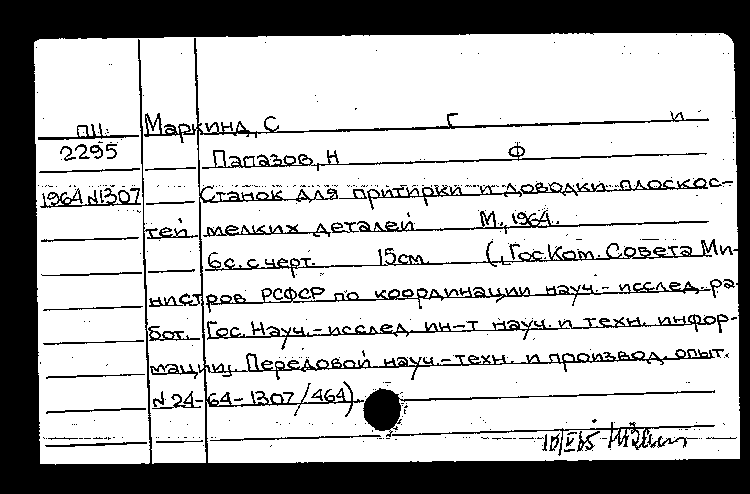 ПИ. Маркинд, С Г и
2295 Папазов, Н Ф
1964 N1307 Станок для притирки и доводки плоскос-
тей мелких деталей М., 1964.
6с. с черт. 15см. (Гос. Ком. Совета Ми-
нистров РСФСР по координации науч.-исслед. ра-
бот. Гос. Науч.-исслед. ин-т науч. и техн. инфор-
мации. Передовой науч.-техн. и производ. опыт.
N 24-64-1307/464)